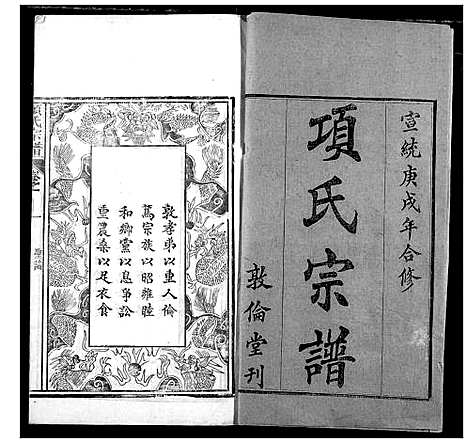 宣統庚戌年合修
項氏宗譜
敦倫堂刊
敦孝弟以重人倫
篤宗族以昭雍睦
和鄉黨以息爭訟
重農桑以足衣食
項氏宗譜